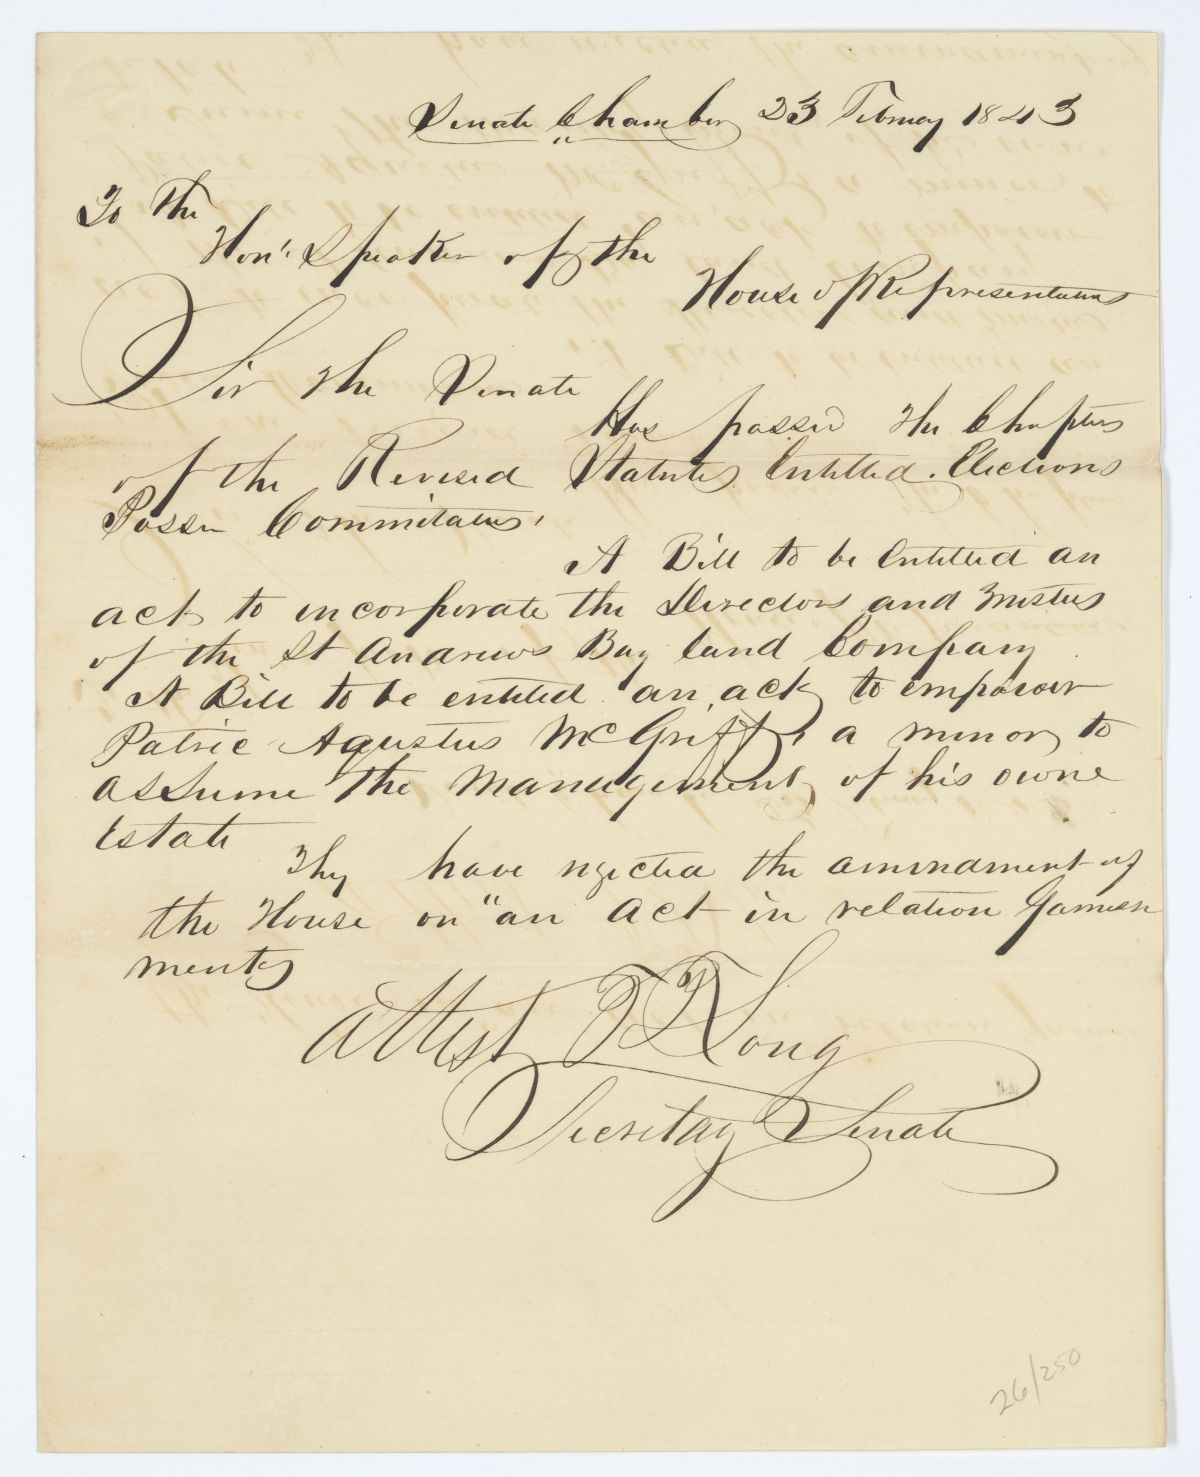 Senate Chamber 23 February 1843
To the
Hon'. Speaker of the
House of Representatives
Sir the Senate
Has passed the Chapters
of the Revised Statutes Entitled. Elections
Posse Commitatus,
A Bill to be Entitled an
act to incorporate the Directors and Trustees
of the St Andrews Bay land Company
A Bill to be entitled an act to empower
Patric Agustus McGriff, a minor to
assume the Management of his owne
Estate
They have rejected the amendment of
the House on "an Act in relation Garnish
ments
Attest T T Long
Secretary Senate
26/250